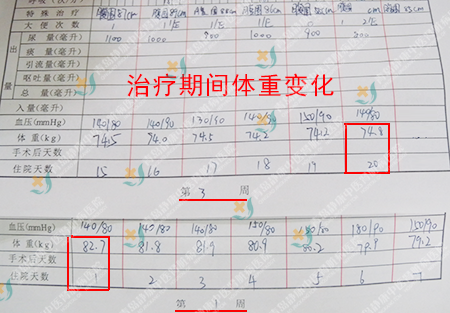 特殊治疗
大便次数 1 1/E 1/E 1 2/E
尿量(毫升) 1100 1000 900 1000 900 800
出 痰量(毫升)
引流量(毫升)
量 呕吐量(毫升)
总量(毫升)
治疗期间体重变化
入量(毫升)
血压(mmHg) 140/80 140/90 130/90 140/80 150/90 140/80
体重(kg) 74.5 74.0 74.5 74.2 74.2 74.8
手术后天数
住院天数 15 16 17 18 19 20
第 3 周
血压(mmHg) 140/80 140/80 140/80 150/80 150/90
体重(kg) 82.7 81.8 81.9 80.9 80.2 79.2
手术后天数
住院天数 1 2 3 4 5 6 7
第 1 周